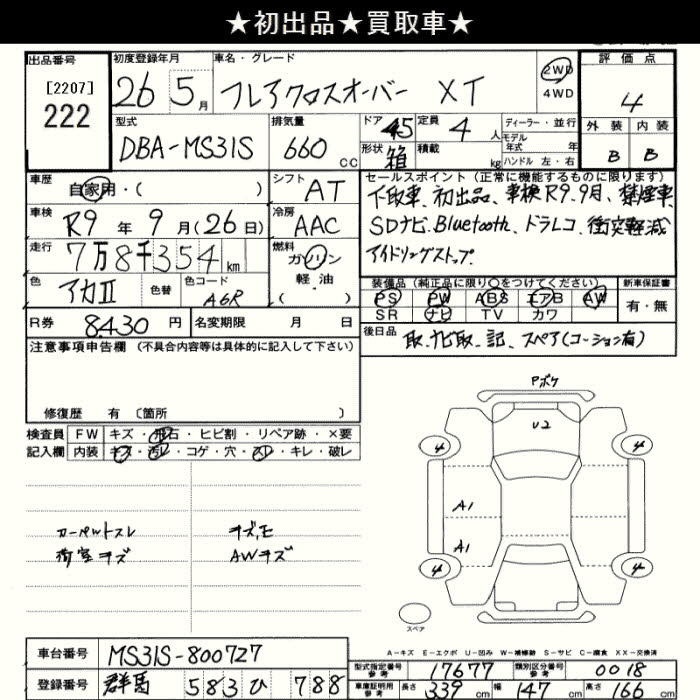 ★初出品★買取車★
出品番号
[2207]
222
初度登録年月
26 5月
車名・グレード
フレアクロスオーバー XT
2WD
4WD
評価点
4
外装 内装
B B
型式
DBA-MS31S
排気量
660 CC
ドア 45
形状 箱
定員 4 人
積載 kg
ディーラー・並行
モデル年式 年
ハンドル 左・右
車歴
自家用・( )
シフト AT
車検
R9 年 9 月(26日)
冷房 AAC
走行
7万8千354 km
燃料
ガソリン
軽油
( )
色
アカII
色替
色コード
A6R
R券 8430 円
名変期限 月 日
セールスポイント(正常に機能するものに限ります)
下取車、初出品、車検R9.9月、禁煙車
SDナビ、Bluetooth、ドラレコ、衝突軽減
アイドリングストップ.
装備品(純正品に限り○をつけてください)
新車保証書
PS PW ABS エアB AW
SR ナビ TV カワ
有・無
後日品
取、ナビ取、記、スペア(コーション有)
注意事項申告欄 (不具合内容等は具体的に記入して下さい)
修復歴 有 〔箇所 〕
検査員
記入欄
FW キズ・飛石・ヒビ割・リペア跡・×要
内装 キズ・汚レ・コゲ・穴・スレ・キレ・破レ
カーペットスレ
荷室キズ
キズ、モ
AWキズ
Pボケ
U2
4 4
A1
A1
4 4
スペア
A-キズ E-エクボ U-凹み W-補修跡 S-サビ C-腐食 XX-交換済
車台番号 MS31S-800727
登録番号 群馬 583 ひ 788
型式指定番号 参考 17677
類別区分番号 参考 0018
車庫証明用 参考 長さ 339 cm 幅 147 cm 高さ 166 cm